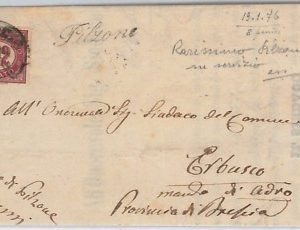 Pilzone
13.1.76
Rarissimo Pilzone
su servizio
All' Onorevole Sig. Sindaco del Comune
Erbusco
mando di Adro
Provincia di Brescia
di Pilzone